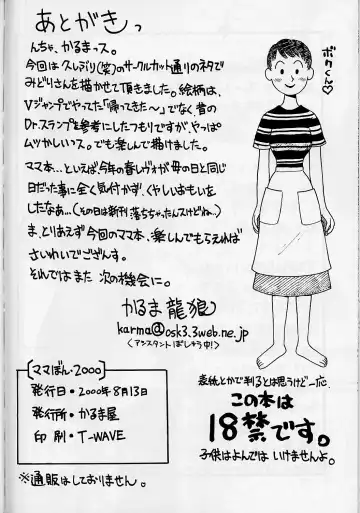 あとがきっ
んちゃ、かるまっス。
今回は久しぶり(笑)のサークルカット通りのネタで
みどりさんを描かせて頂きました。絵柄は、
Vジャンプでやってた「帰ってきた〜」でなく、昔の
Dr.スランプを参考にしたつもりですが、やっぱ
ムツかしいっス。でも楽しんで描けました。
ママ本…といえば今年の春レヴォが母の日と同じ
日だった事に全く気付かず、くやしいおもいを
したなあ…(その日は新刊落ちちゃったんスけどね…)
ま、とりあえず今回のママ本、楽しんでもらえれば
さいわいでござんす。
それではまた 次の機会に。
かるま 龍狼
karma@osk3.3web.ne.jp
〈アシスタントぼしゅう中!〉
ボクくん♡
[ママぼん・2000]
発行日・2000年8月13日
発行所・かるま屋
印刷・T-WAVE
※通販はしておりません。
表紙とかで判るとは思うけど一応
この本は
18禁です。
子供はよんでは いけませんよ。